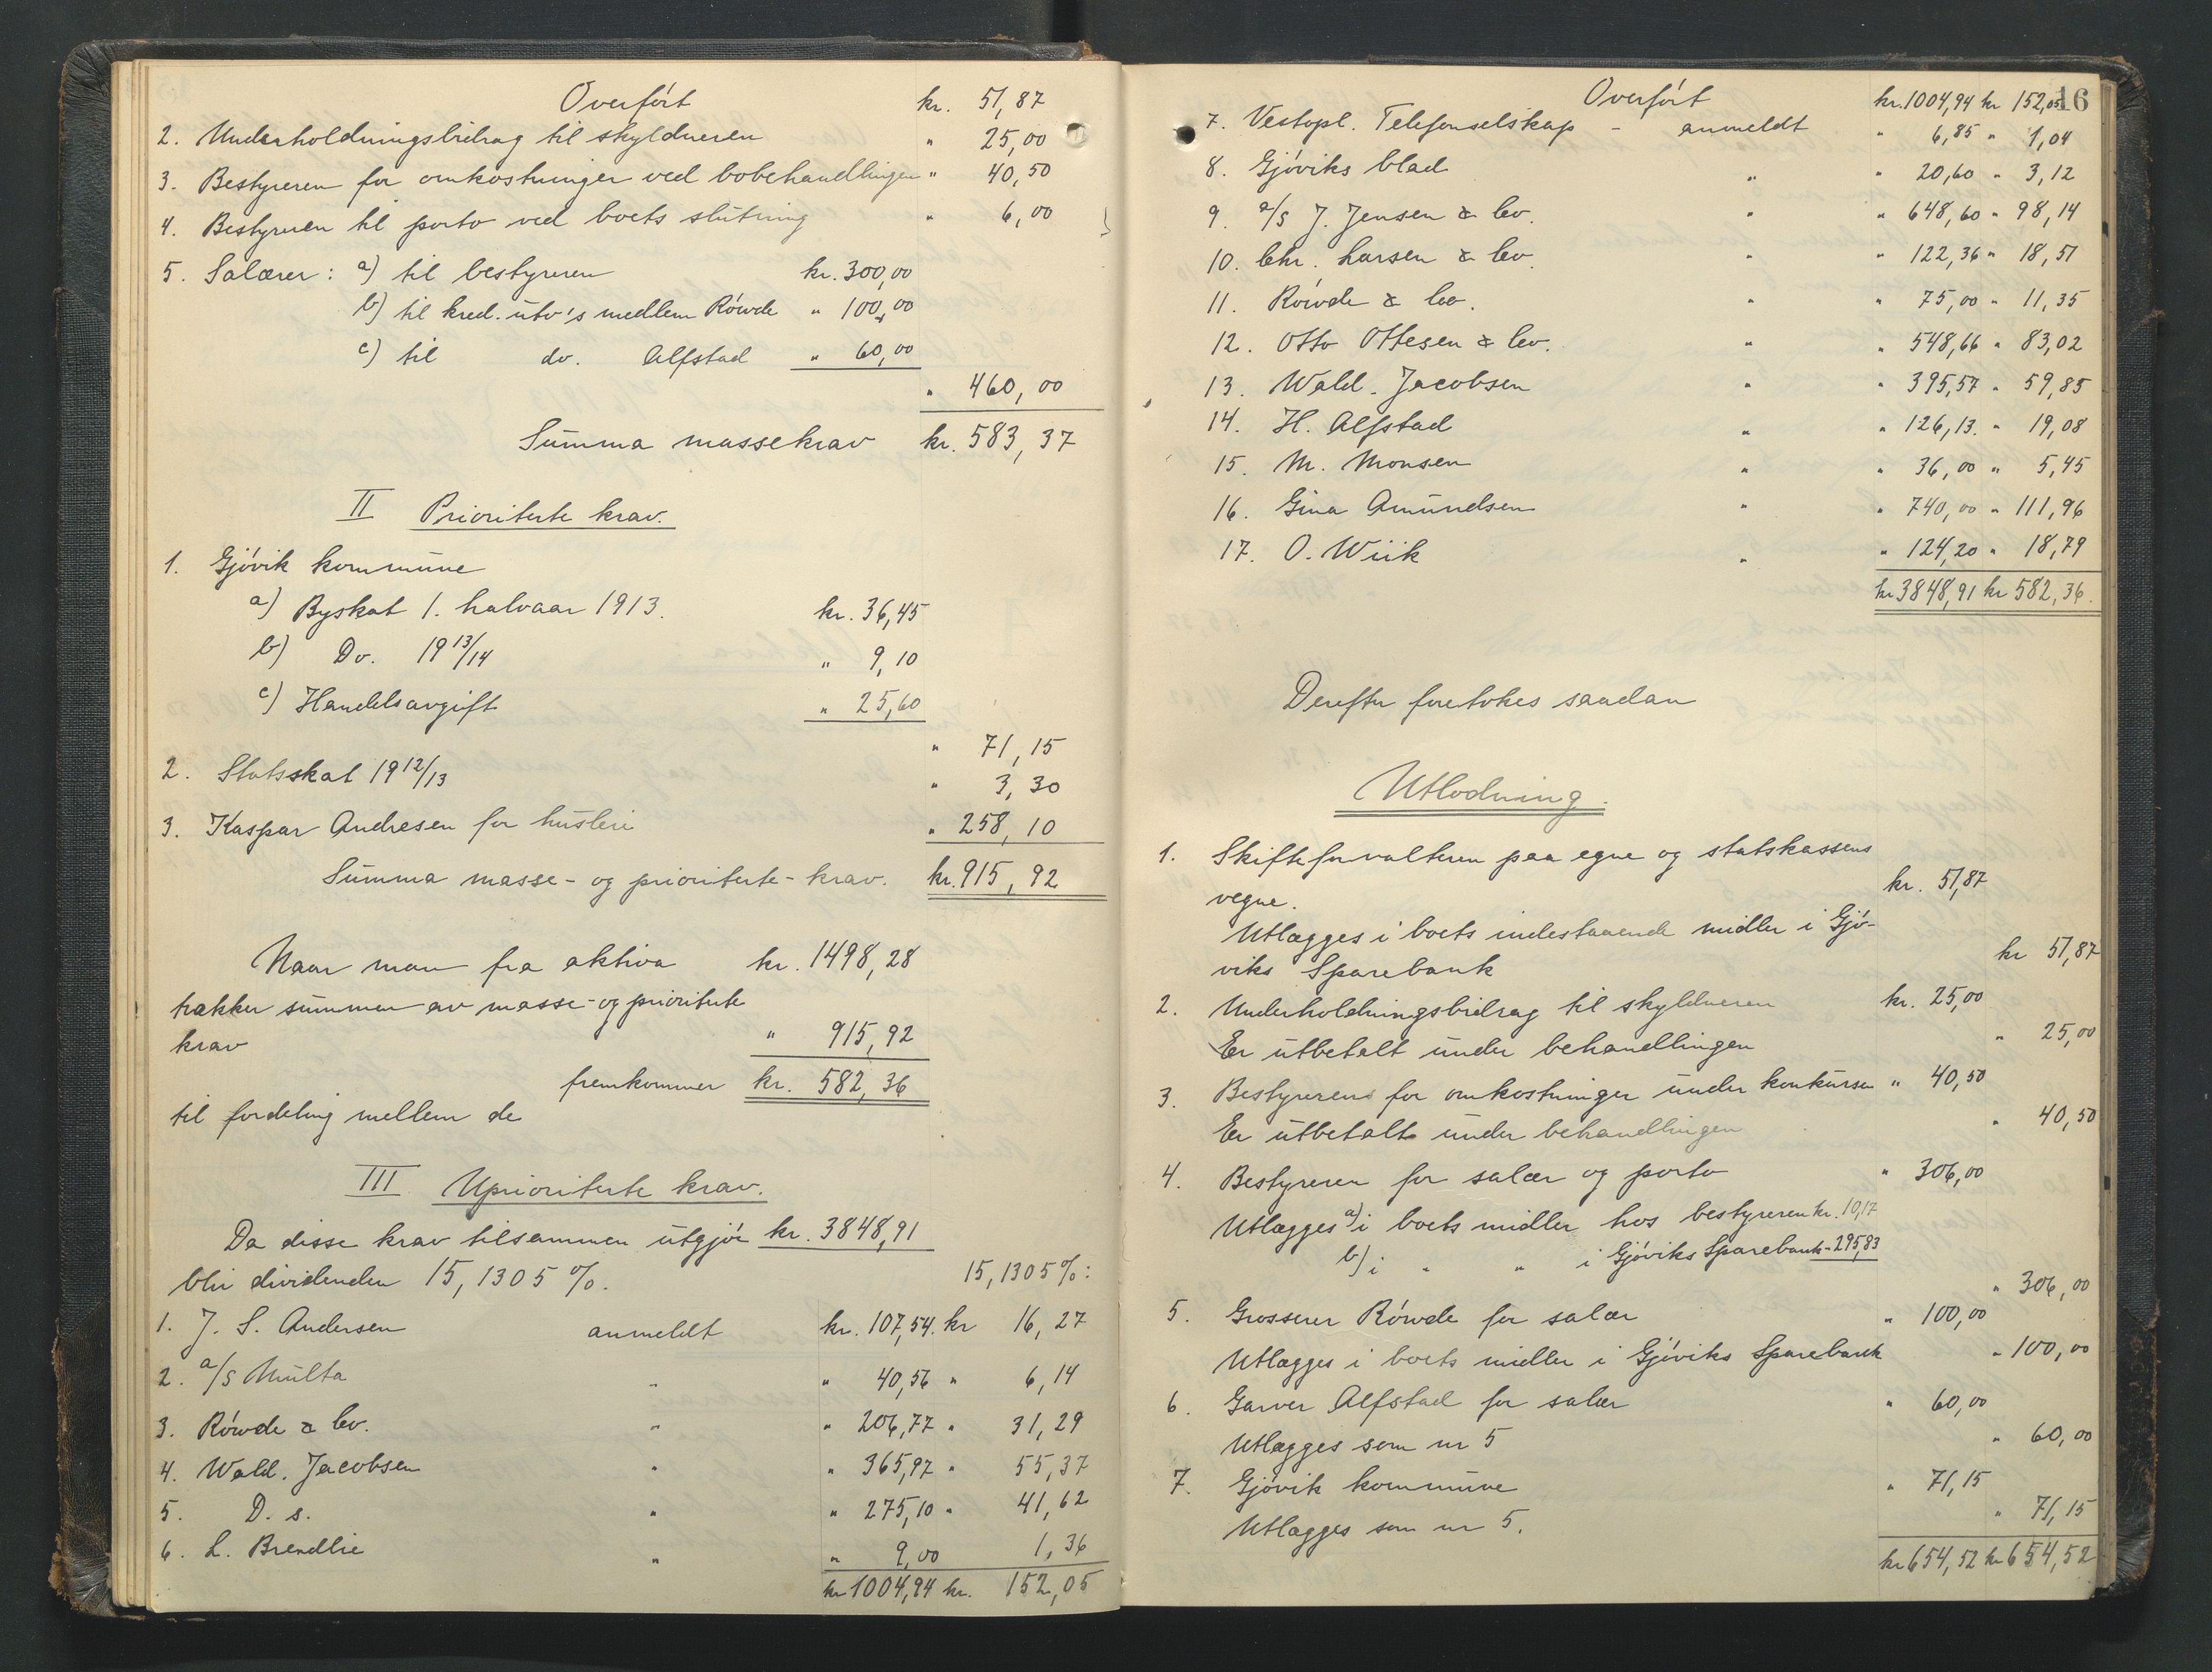 Overført kr. 51,87
2. Underholdningsbidrag til skyldneren " 25,00
3. Bestyreren for omkostninger ved bobehandlingen " 40,50
4. Bestyreren til porto ved boets slutning " 6,00
5. Salærer: a) til bestyreren kr. 300,00
b) til kred. utv's medlem Röwde " 100,00
c) til do. Alfstad " 60,00
" 460,00
Summa massekrav kr. 583,37
II Prioriterte krav.
1. Gjøvik kommune
a) Byskat 1. halvaar 1913. kr. 36,45
b) Do. 19 13/14 " 9,10
c) Handelsavgift " 25,60
" 71,15
2. Statsskat 19 12/13 " 3,30
3. Kaspar Andresen for husleie " 258,10
Summa masse- og prioriterte- krav. kr. 915,92
Naar man fra aktiva kr. 1498,28
trækker summen av masse- og prioriterte
krav " 915,92
fremkommer kr. 582,36
til fordeling mellem de
III Uprioriterte krav.
Da disse krav tilsammen utgjör kr. 3848,91
blir dividenden 15,1305 %. 15,1305 %:
1. J. S. Andersen anmeldt kr. 107,54. kr 16,27
2. a/s Multa " " 40,56 " 6,14
3. Röwde & Co. " " 206,77 " 31,29
4. Wald. Jacobsen " " 365,97 " 55,37
5. D. s. " " 275,10 " 41,62
6. L. Brendlie " " 9,00 1,36
kr 1004,94 kr. 152,05
16
Overført kr. 1004,94 kr 152,05
7. Vestopl. Telefonselskap - anmeldt " 6,85 " 1,04
8. Gjøviks blad " " 20,60 " 3,12
9. a/s J. Jensen & Co. " " 648,60 " 98,14
10. Chr. Larsen & Co. " " 122,36 " 18,51
11. Röwde & Co. " " 75,00 " 11,35
12. Otto Ottesen & Co. " " 548,66 " 83,02
13. Wald. Jacobsen " " 395,57 " 59,85
14. H. Alfstad " " 126,13. " 19,08
15. M. Monsen " " 36,00 " 5,45
16. Gina Amundsen " " 740,00 " 111,96
17. O. Wiik " " 124,20 " 18,79
kr 3848,91 kr 582,36.
Derefter foretokes saadan
Utlodning.
1. Skifteforvalteren paa egne og statskassens
vegne. kr. 51,87
Utlægges i boets indestaaende midler i Gjø-
viks Sparebank kr 51,87
2. Underholdningsbidrag til skyldneren kr. 25,00
Er utbetalt under behandlingen " 25,00
3. Bestyrerens for omkostninger under konkursen " 40,50
Er utbetalt under behandlingen " 40,50
4. Bestyreren for salær og porto " 306,00
Utlægges a) i boets midler hos bestyreren kr. 10,17
b) i " " i Gjøviks Sparebank - 295,83
" 306,00
5. Grosserer Röwde for salær " 100,00
Utlægges i boets midler i Gjøviks Sparebank " 100,00
6. Garver Alfstad for salær " 60,00
Utlægges som nr 5 " 60,00
7. Gjøvik kommune " 71,15
Utlægges som nr 5. " 71,15
kr 654,52 kr 654,52